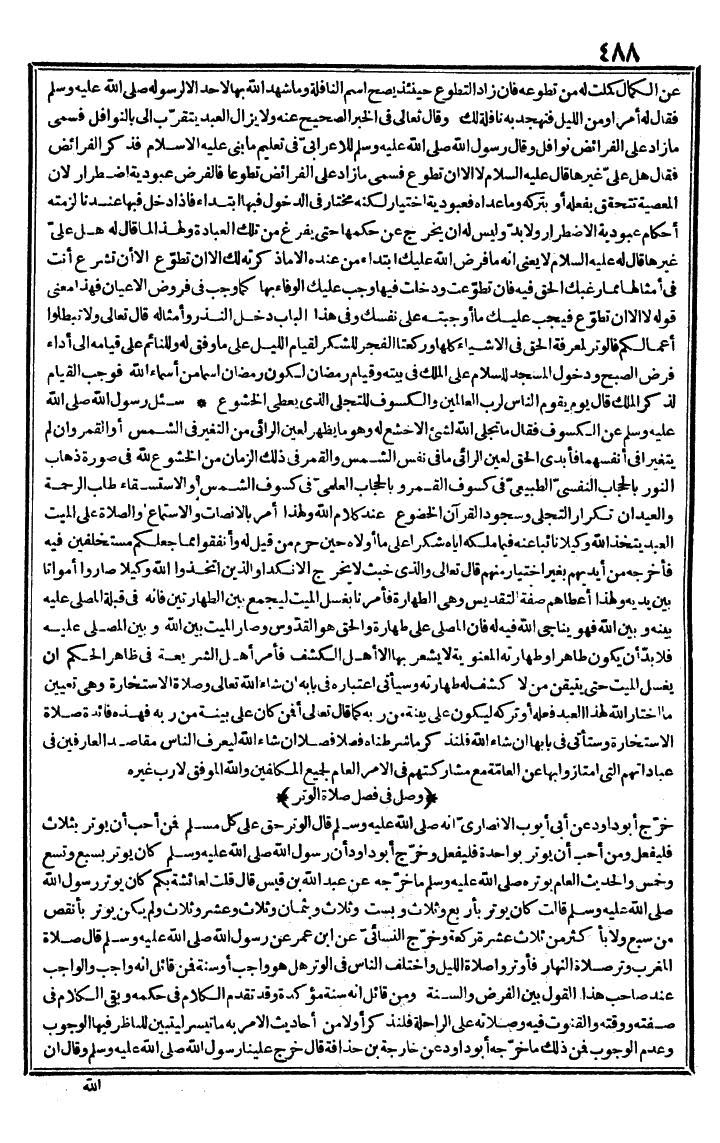 ٤٨٨
عن الكمال كملت له من تطوعه فان زاد التطوع حينئذ يصح اسم النافلة وما شهد الله بها لاحد الا لرسوله صلى الله عليه وسلم
فقال له أمرا ومن الليل فتهجد به نافلة لك وقال تعالى فى الخبر الصحيح عنه ولا يزال العبد يتقرب الى بالنوافل فسمى
مازاد على الفرائض نوافل وقال رسول الله صلى الله عليه وسلم للاعرابى فى تعليم ما بنى عليه الاسلام فذكر الفرائض
فقال هل علىّ غيرها قال عليه السلام لا الا ان تطوع فسمى مازاد على الفرائض تطوعا فالفرض عبودية اضطرار لان
المعصية تتحقق بفعله أو بتركه وما عداه فعبودية اختيار لكنه مختار فى الدخول فيها ابتداء فاذا دخل فيها عندنا لزمته
أحكام عبودية الاضطرار ولابدّ وليس له ان يخرج عن حكمها حتى يفرغ من تلك العبادة ولهذا لما قال له هل علىّ
غيرها قال له عليه السلام لا يعنى انه ما فرض الله عليك ابتداء من عنده الا ما ذكرته لك الا ان تطوّع الا أن تشرع أنت
فى أمثالها مما رغبك الحق فيه فان تطوّعت ودخلت فيها وجب عليك الوفاء بها كما وجب فى فروض الاعيان فهذا معنى
قوله لا الا ان تطوّع فيجب عليك ما أوجبته على نفسك وفى هذا الباب دخل النذر وأمثاله قال تعالى ولا تبطلوا
أعمالكم فالوتر لمعرفة الحق فى الاشياء كلها وركعتا الفجر للشكر لقيام الليل على ما وفق له وللنائم على قيامه الى أداء
فرض الصبح ودخول المسجد للسلام على الملك فى بيته وقيام رمضان لكون رمضان اسما من أسماء الله فوجب القيام
لذكر الملك قال يوم يقوم الناس لرب العالمين والكسوف للتجلى الذى يعطى الخشوع * سئل رسول الله صلى الله
عليه وسلم عن الكسوف فقال ما تجلى الله لشئ الا خشع له وهو ما يظهر لعين الرائى من التغير فى الشمس أو القمر وان لم
يتغيرا فى أنفسهما فأبدى الحق لعين الرائى ما فى نفس الشمس والقمر فى ذلك الزمان من الخشوع لله فى صورة ذهاب
النور بالحجاب النفسىّ الطبيعىّ فى كسوف القمر وبالحجاب العلمىّ فى كسوف الشمس والاستسقاء طلب الرحمة
والعيدان تكرار التجلى وسجود القرآن الخضوع عند كلام الله ولهذا أمر بالانصات والاستماع والصلاة على الميت
العبد يتخذ الله وكيلا نائبا عنه فيما ملكه اياه شكرا على ما أولاه حين حرم من قيل له وأنفقوا مما جعلكم مستخلفين فيه
فأخرجه من أيديهم بغير اختيار منهم قال تعالى والذى خبث لا يخرج الا نكدا والذين اتخذوا الله وكيلا صاروا أمواتا
بين يديه ولهذا أعطاهم صفة التقديس وهى الطهارة فأمرنا بغسل الميت ليجمع بين الطهارتين فانه فى قبلة المصلى عليه
بينه وبين الله فهو يناجى الله فيه له فان المصلى على طهارة والحق هو القدّوس وصار الميت بين الله وبين المصلى عليه
فلابدّ أن يكون طاهرا وطهارته المعنوية لا يشعر بها الا أهل الكشف فأمر أهل الشريعة فى ظاهر الحكم ان
يغسل الميت حتى يتيقن من لا كشف له طهارته وسيأتى اعتباره فى بابه ان شاء الله تعالى وصلاة الاستخارة وهى تعيين
ما اختار الله لهذا العبد فعله أو تركه ليكون على بينة من ربه كما قال تعالى أفمن كان على بينة من ربه فهذه فائدة صلاة
الاستخارة وستأتى فى بابها ان شاء الله فلنذكر ما شرطناه فصلا فصلا ان شاء الله ليعرف الناس مقاصد العارفين فى
عباداتهم التى امتازوا بها عن العامّة مع مشاركتهم فى الامر العام لجميع المكلفين والله الموفق لا رب غيره
﴿وصل فى فصل صلاة الوتر﴾
خرّج أبو داود عن أبى أيوب الانصارىّ انه صلى الله عليه وسلم قال الوتر حق على كل مسلم فمن أحب أن يوتر بثلاث
فليفعل ومن أحب أن يوتر بواحدة فليفعل وخرّج أبو داود أن رسول الله صلى الله عليه وسلم كان يوتر بسبع وتسع
وخمس والحديث العام بوتره صلى الله عليه وسلم ما خرّجه عن عبد الله بن قيس قال قلت لعائشة بكم كان يوتر رسول الله
صلى الله عليه وسلم قالت كان يوتر بأربع وثلاث وبست وثلاث وثمان وثلاث وعشر وثلاث ولم يكن يوتر بأنقص
من سبع ولا بأكثر من ثلاث عشرة ركعة وخرّج النسائىّ عن ابن عمر عن رسول الله صلى الله عليه وسلم قال صلاة
المغرب وتر صلاة النهار فأوتروا صلاة الليل واختلف الناس فى الوتر هل هو واجب أو سنة فمن قائل انه واجب والواجب
عند صاحب هذا القول بين الفرض والسنة ومن قائل انه سنة مؤكدة وقد تقدم الكلام فى حكمه وبقى الكلام فى
صفته ووقته والقنوت فيه وصلاته على الراحلة فلنذكر أولا من أحاديث الامر به ما تيسر ليتبين للناظر فيها الوجوب
وعدم الوجوب فمن ذلك ما خرّجه أبو داود عن خارجة بن حذافة قال خرج علينا رسول الله صلى الله عليه وسلم وقال ان
الله